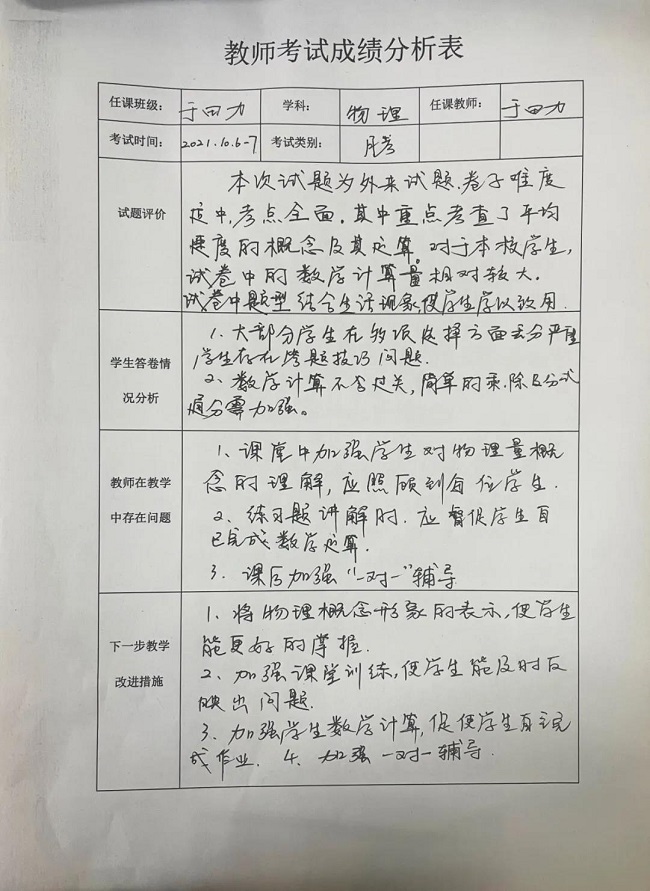 教师考试成绩分析表
任课班级： 于田力 学科： 物理 任课教师： 于田力
考试时间： 2021.10.6-7 考试类别： 月考
试题评价
本次试题为外来试题.卷子难度
适中,考点全面.其中重点考查了平均
速度的概念及其运算。对于本校学生,
试卷中的数学计算量相对较大.
试卷中题型结合生活现象使学生学以致用.
学生答卷情
况分析
1. 大部分学生在多项选择方面丢分严重
学生存在答题技巧问题.
2、数学计算不合过关,简单的乘.除及分式
通分需加强。
教师在教学
中存在问题
1、课堂中加强学生对物理量概
念的理解,应照顾到每位学生.
2、练习题讲解时.应督促学生自
己完成数学运算.
3. 课后加强“一对一”辅导
下一步教学
改进措施
1、将物理概念形象的表示,使学生
能更好的掌握.
2、加强课堂训练,使学生能及时反
映出问题.
3. 加强学生数学计算,促使学生自主完
成作业. 4. 加强一对一辅导.